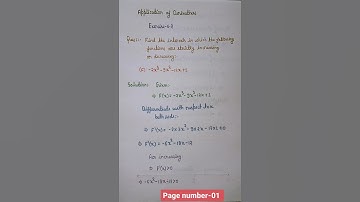 Application of Derivatives
Exercise-6.2
Ques:- Find the intervals in which the following
functions are strictly increasing
or decreasing:
(c) -2x³-9x²-12x+1
Solution: Given
⇒ f(x) = -2x³-9x²-12x+1
Differentiate with respect to x
both side:-
⇒ f'(x) = -2×3x²-9×2x-12×1+0
⇒ f'(x) = -6x²-18x-12
For increasing
⇒ f'(x)>0
⇒ -6x²-18x-12>0
Page number-01